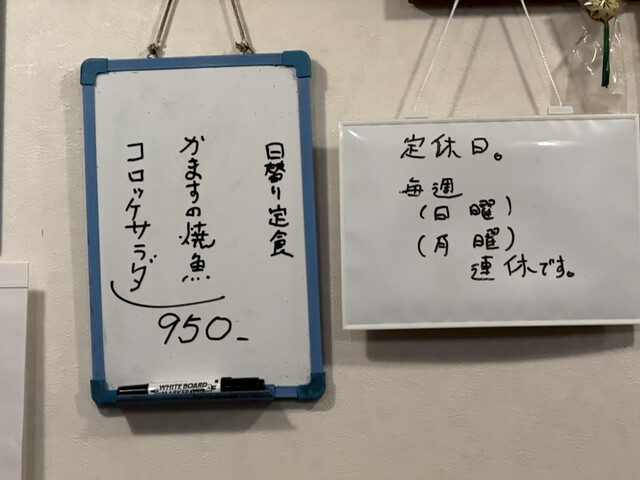 日替り定食
かますの焼魚
コロッケサラダ
950-
WHITE BOARD
MARKER
定休日。
毎週
(日 曜)
(月 曜)
連休です。